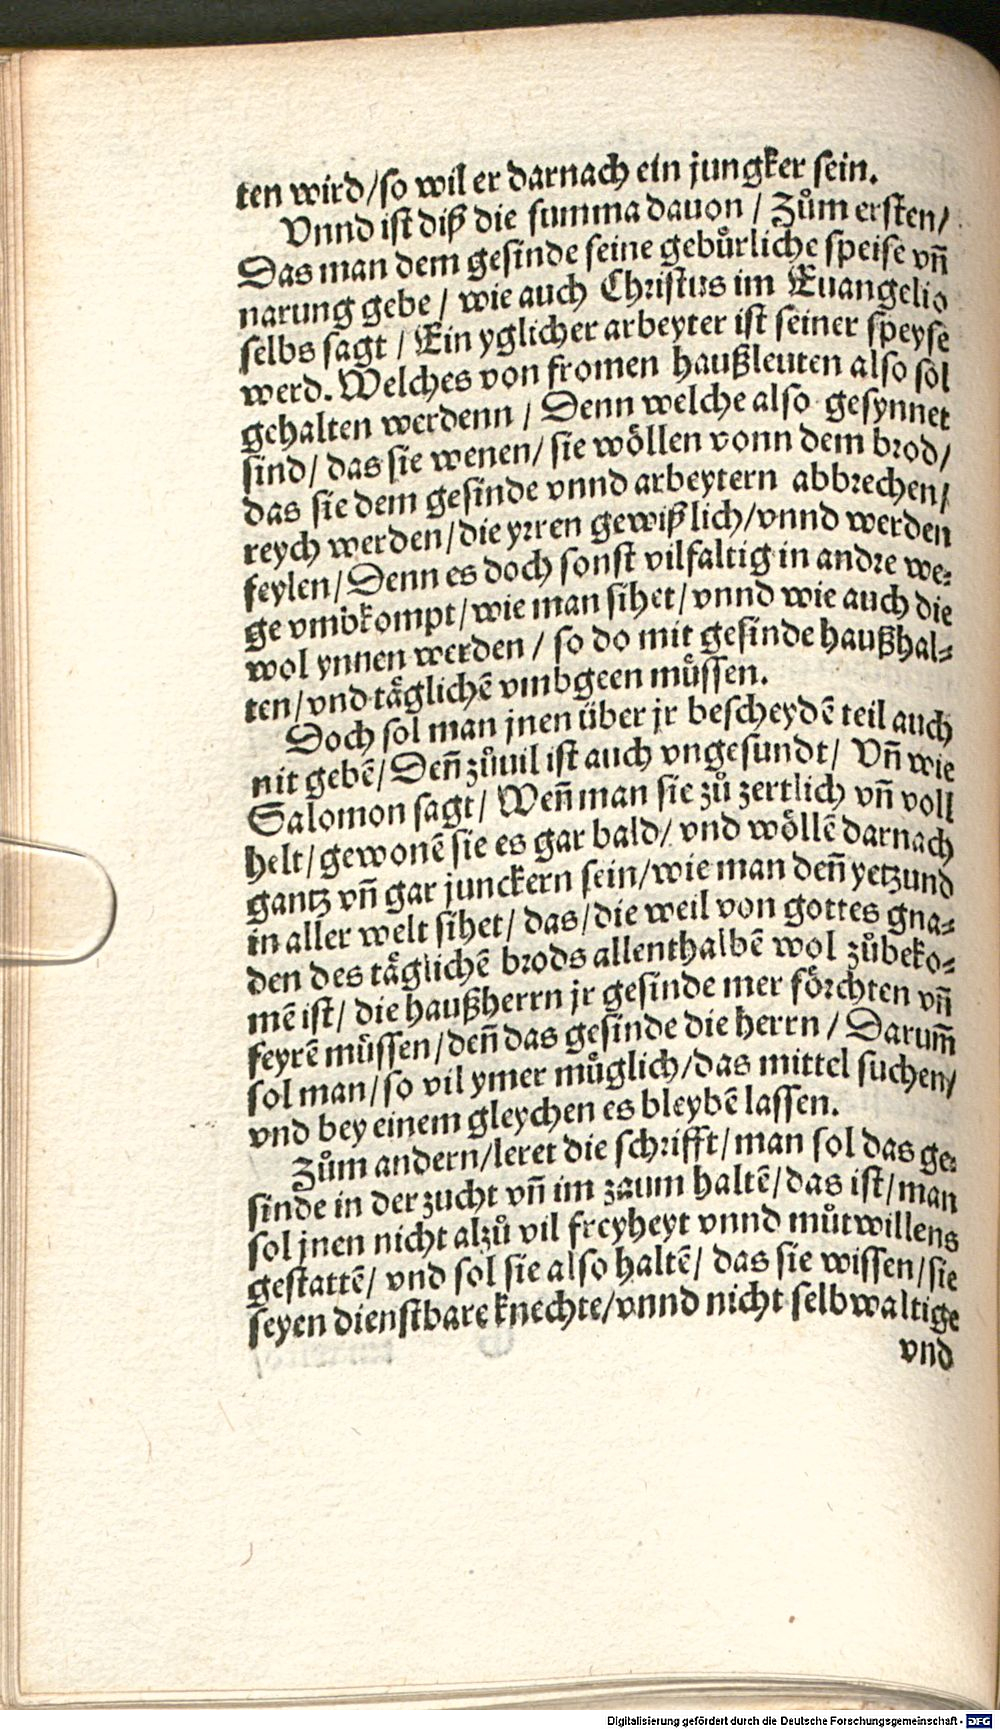 ten wird/so wil er darnach ein jungker sein.
Vnnd ist diß die summa dauon / Zům ersten/
Das man dem gesinde seine gebůrliche speise vñ
narung gebe / wie auch Christus im Euangelio
selbs sagt / Ein yglicher arbeyter ist seiner speyse
werd. Welches von fromen haußleuten also sol
gehalten werdenn / Denn welche also gesynnet
sind/ das sie wenen/ sie wöllen vonn dem brod/
das sie dem gesinde vnnd arbeytern abbrechen/
reych werden/die yrren gewißlich/vnnd werden
feylen/Denn es doch sonst vilfaltig in andre we-
ge vmbkompt/wie man sihet/vnnd wie auch die
wol ynnen werden / so do mit gesinde haußhal-
ten/vnd täglichē vmbgeen müssen.
Doch sol man jnen über jr bescheydē teil auch
nit gebē/Deñ zůuil ist auch vngesundt/ Vñ wie
Salomon sagt/ Weñ man sie zů zertlich vñ voll
helt/gewonē sie es gar bald/ vnd wöllē darnach
gantz vñ gar junckern sein/wie man deñ yetzund
in aller welt sihet/ das/die weil von gottes gna-
den des täglichē brods allenthalbē wol zůbeko-
mē ist/ die haußherrn jr gesinde mer förchten vñ
feyrē müssen/deñ das gesinde die herrn / Darum̄
sol man/so vil ymer můglich/das mittel suchen/
vnd bey einem gleychen es bleybē lassen.
Zům andern/leret die schrifft/man sol das ge-
sinde in der zucht vñ im zaum haltē/das ist/man
sol jnen nicht alzů vil freyheyt vnnd můtwillens
gestattē/ vnd sol sie also haltē/ das sie wissen/sie
seyen dienstbare knechte/vnnd nicht selbwaltige
vnd
Digitalisierung gefördert durch die Deutsche Forschungsgemeinschaft - DFG